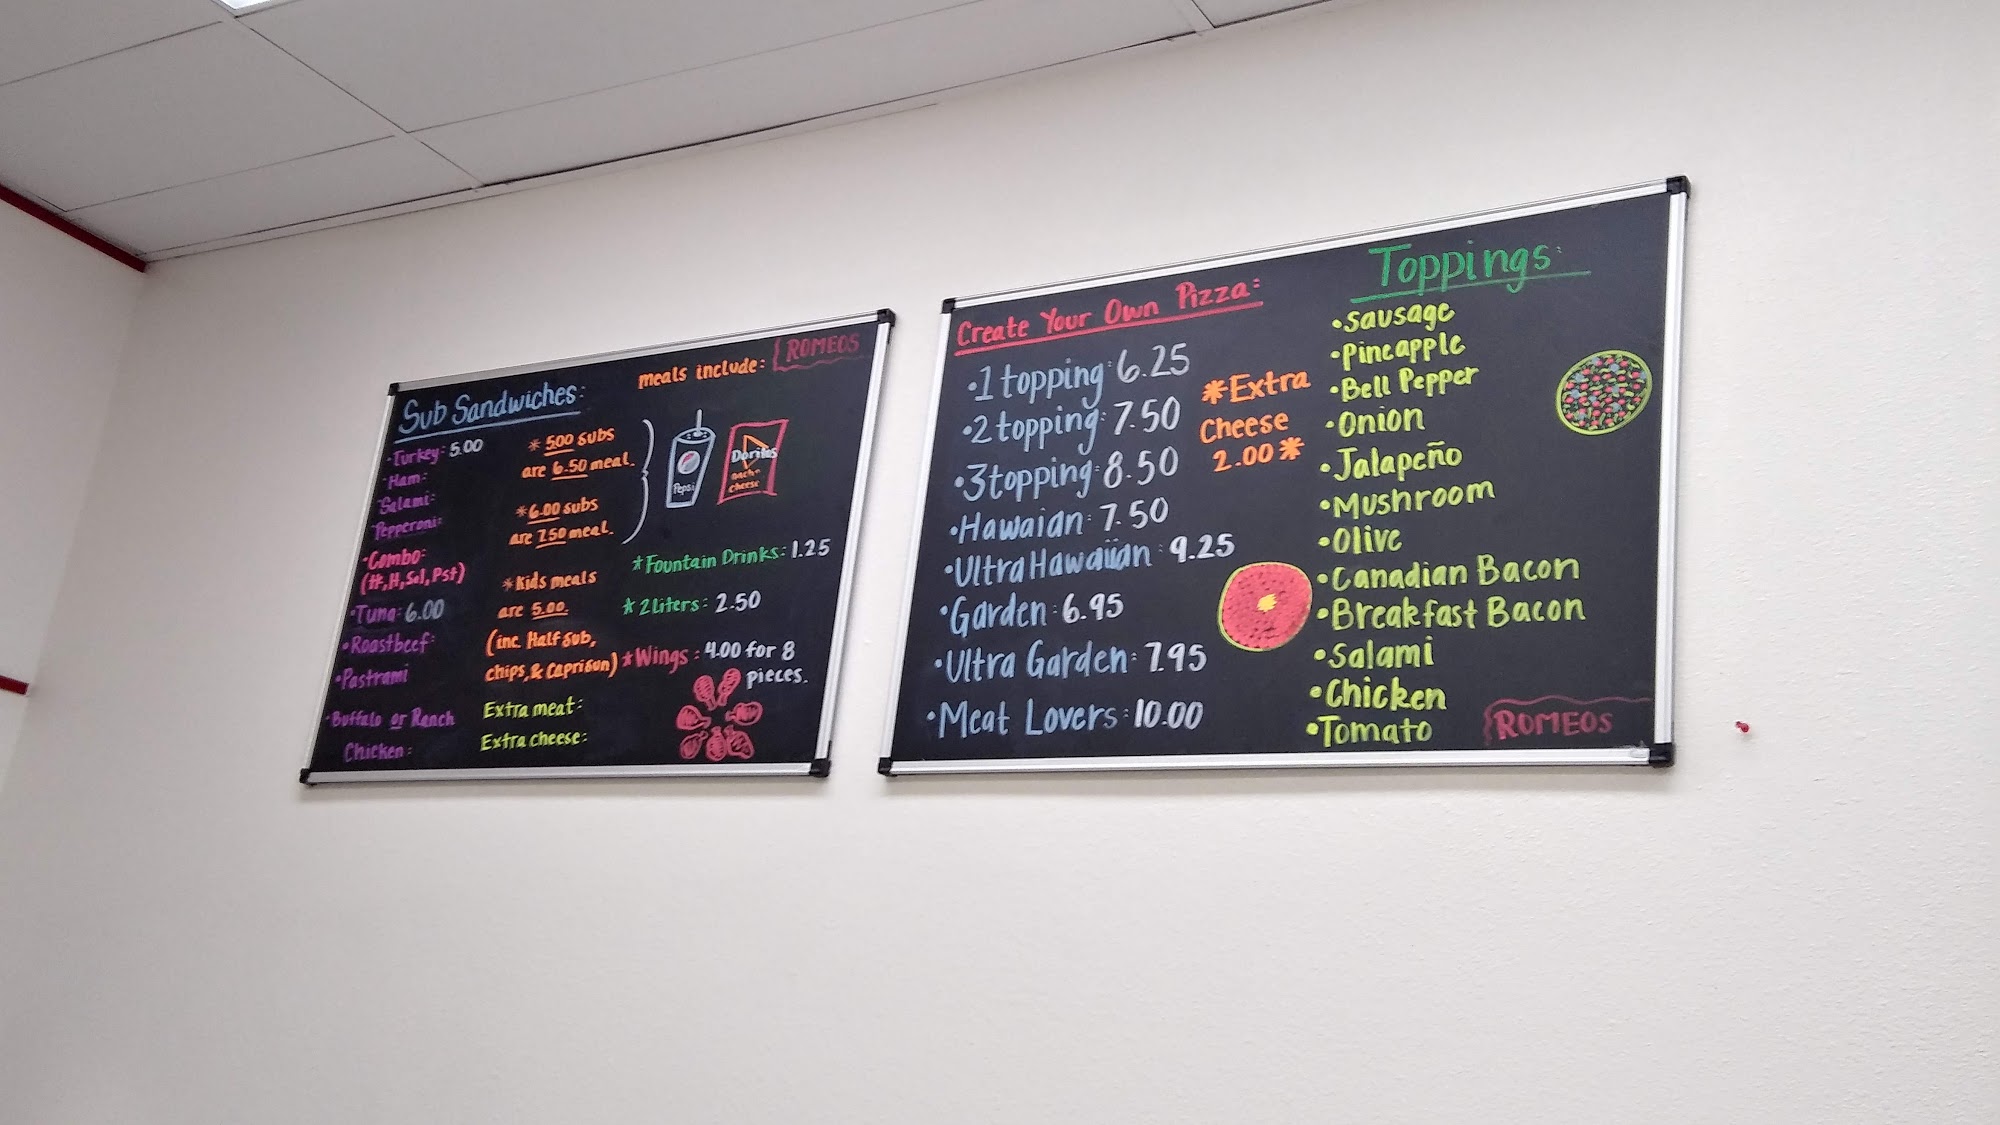 Sub Sandwiches:
• Turkey: 5.00
• Ham:
Salami:
Pepperoni:
• Combo:
H, Sal, Pst)
• Tuna: 6.00
• Roastbeef:
• Pastrami
• Buffalo or Ranch
Chicken:
* 500 subs
are 6.50 meal.
* 6.00 subs
are 7.50 meal.
* Kids meals
are 5.00.
(inc. Half sub,
chips, & Caprisun)
Extra meat:
Extra cheese:
meals include:
ROMEOS
Pepsi
Doritos
nacho
cheese
* Fountain Drinks: 1.25
* 2 Liters: 2.50
* Wings: 4.00 for 8
pieces.
Create Your Own Pizza:
• 1 topping: 6.25
• 2 topping: 7.50
• 3 topping: 8.50
• Hawaian: 7.50
• Ultra Hawaiian: 9.25
• Garden: 6.95
• Ultra Garden: 7.95
• Meat Lovers: 10.00
*Extra
Cheese
2.00 *
Toppings:
• Sausage
• Pineapple
• Bell Pepper
• Onion
• Jalapeño
• Mushroom
• Olive
• Canadian Bacon
• Breakfast Bacon
• Salami
• Chicken
• Tomato
ROMEOS